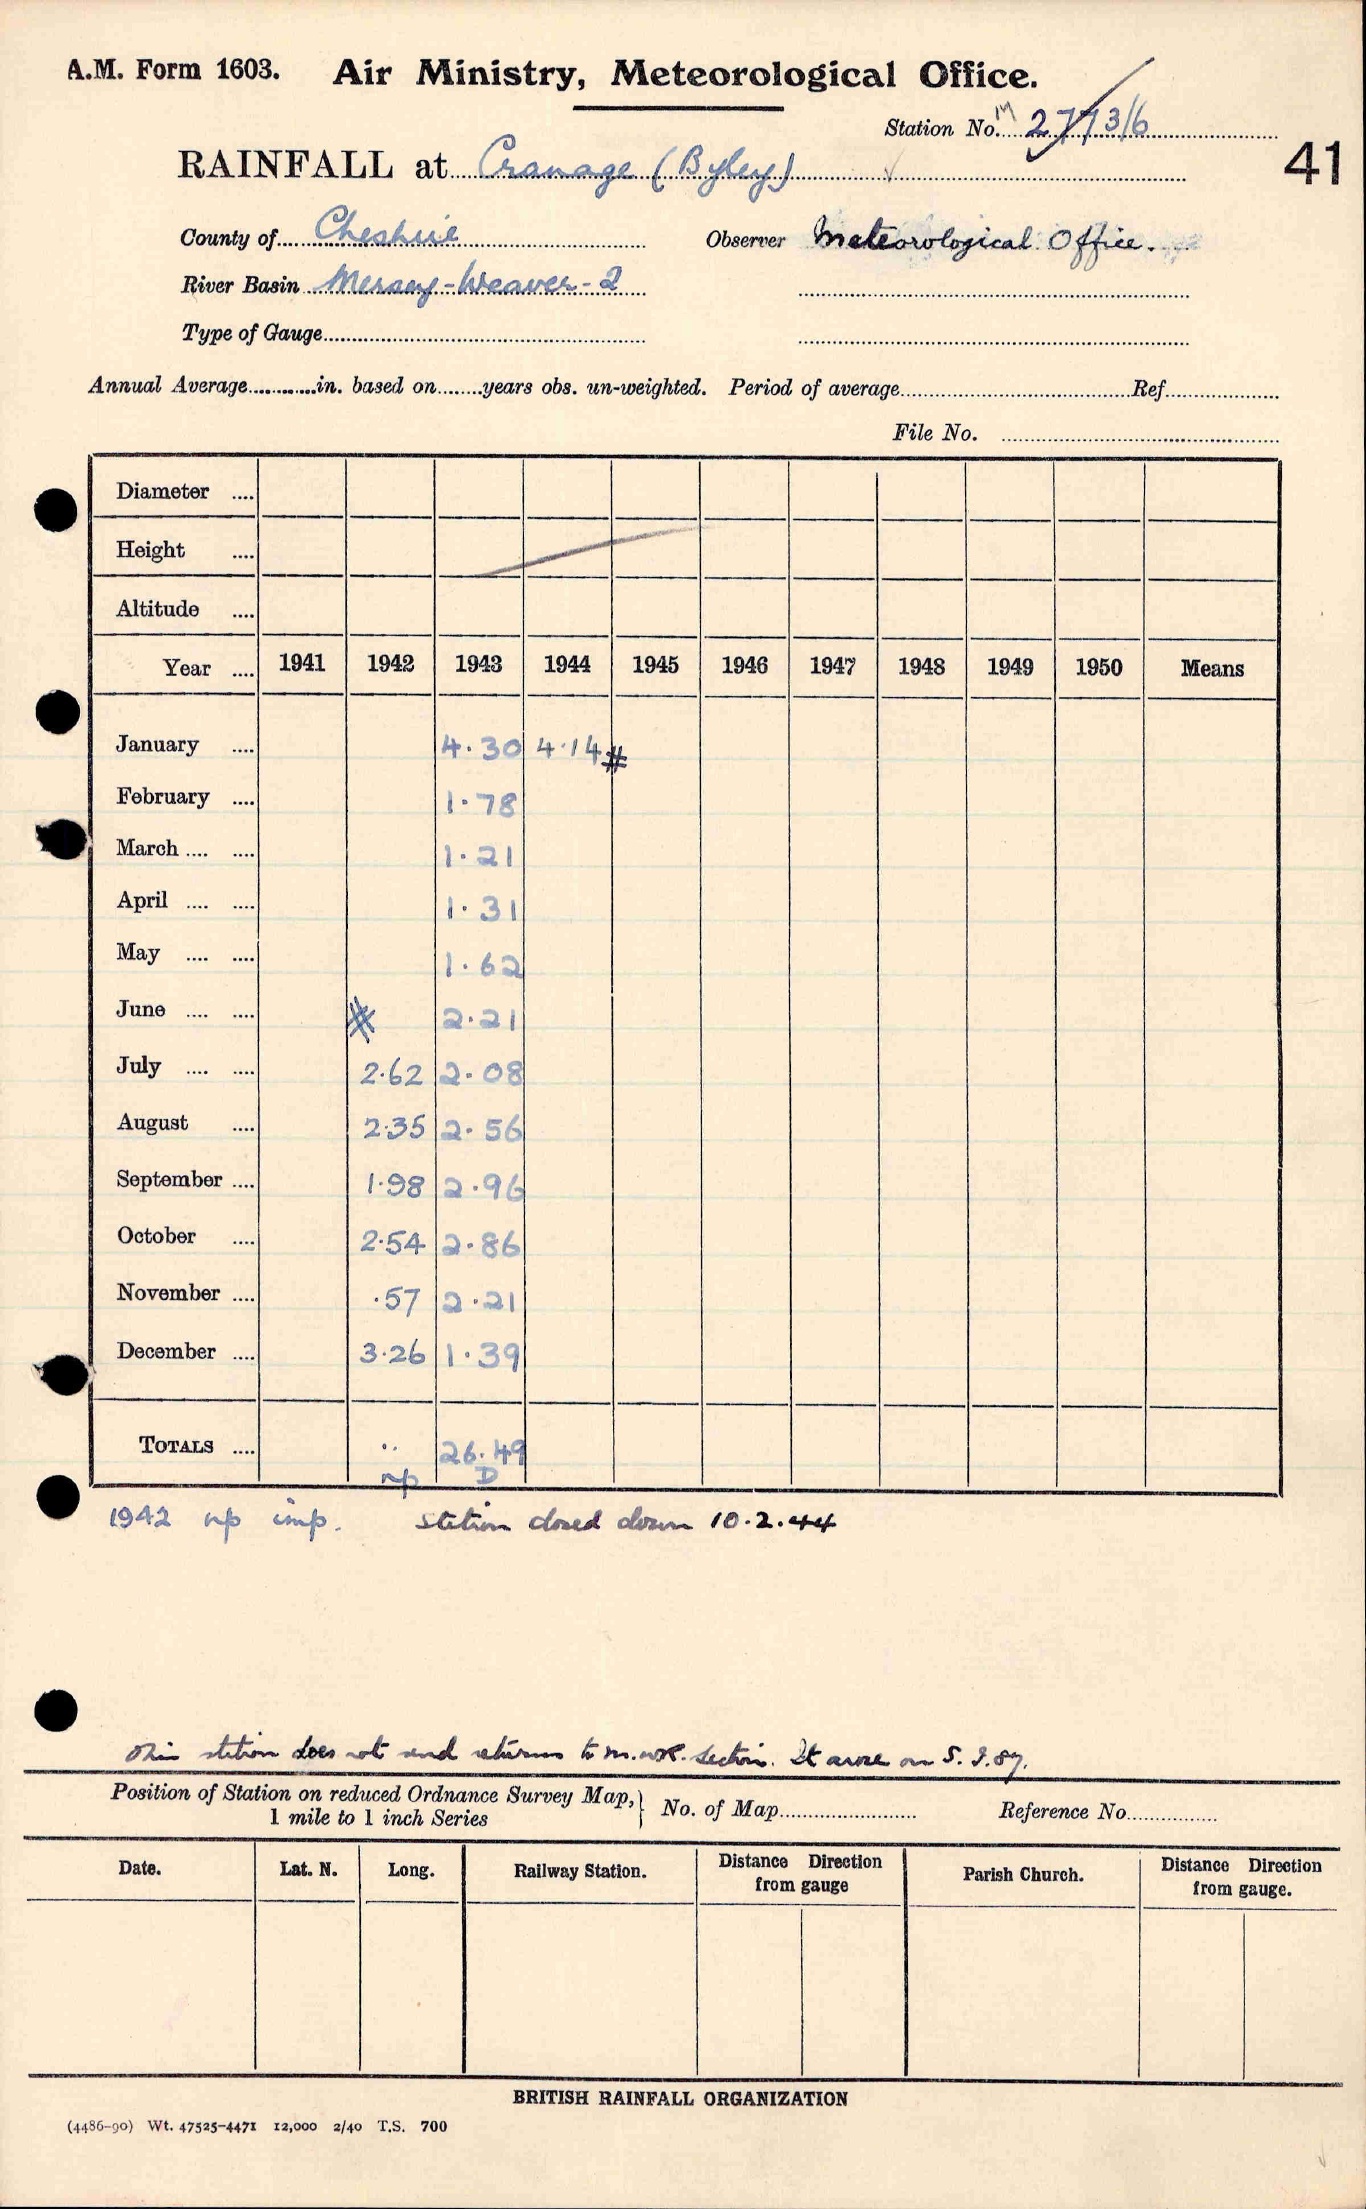 A.M. Form 1603. Air Ministry, Meteorological Office.
Station No. M 2773/6
RAINFALL at Cranage (Byley)
41
County of Cheshire Observer Meteorological Office.
River Basin Mersey-Weaver-2
Type of Gauge
Annual Average in. based on years obs. un-weighted. Period of average Ref
File No.
Diameter
Height
Altitude
Year 1941 1942 1943 1944 1945 1946 1947 1948 1949 1950 Means
January 4.30 4.14 #
February 1.78
March 1.21
April 1.31
May 1.62
June 2.21
July 2.62 2.08
August 2.35 2.56
September 1.98 2.96
October 2.54 2.86
November .57 2.21
December 3.26 1.39
TOTALS .. 26.49
np D
1942 np imp. Station closed down 10.2.44
This station does not send returns to section. It arose on
Position of Station on reduced Ordnance Survey Map, 1 mile to 1 inch Series } No. of Map Reference No.
Date. Lat. N. Long. Railway Station. Distance Direction from gauge Parish Church. Distance Direction from gauge.
BRITISH RAINFALL ORGANIZATION
(4486-90) Wt. 47525-4471 12,000 2/40 T.S. 700